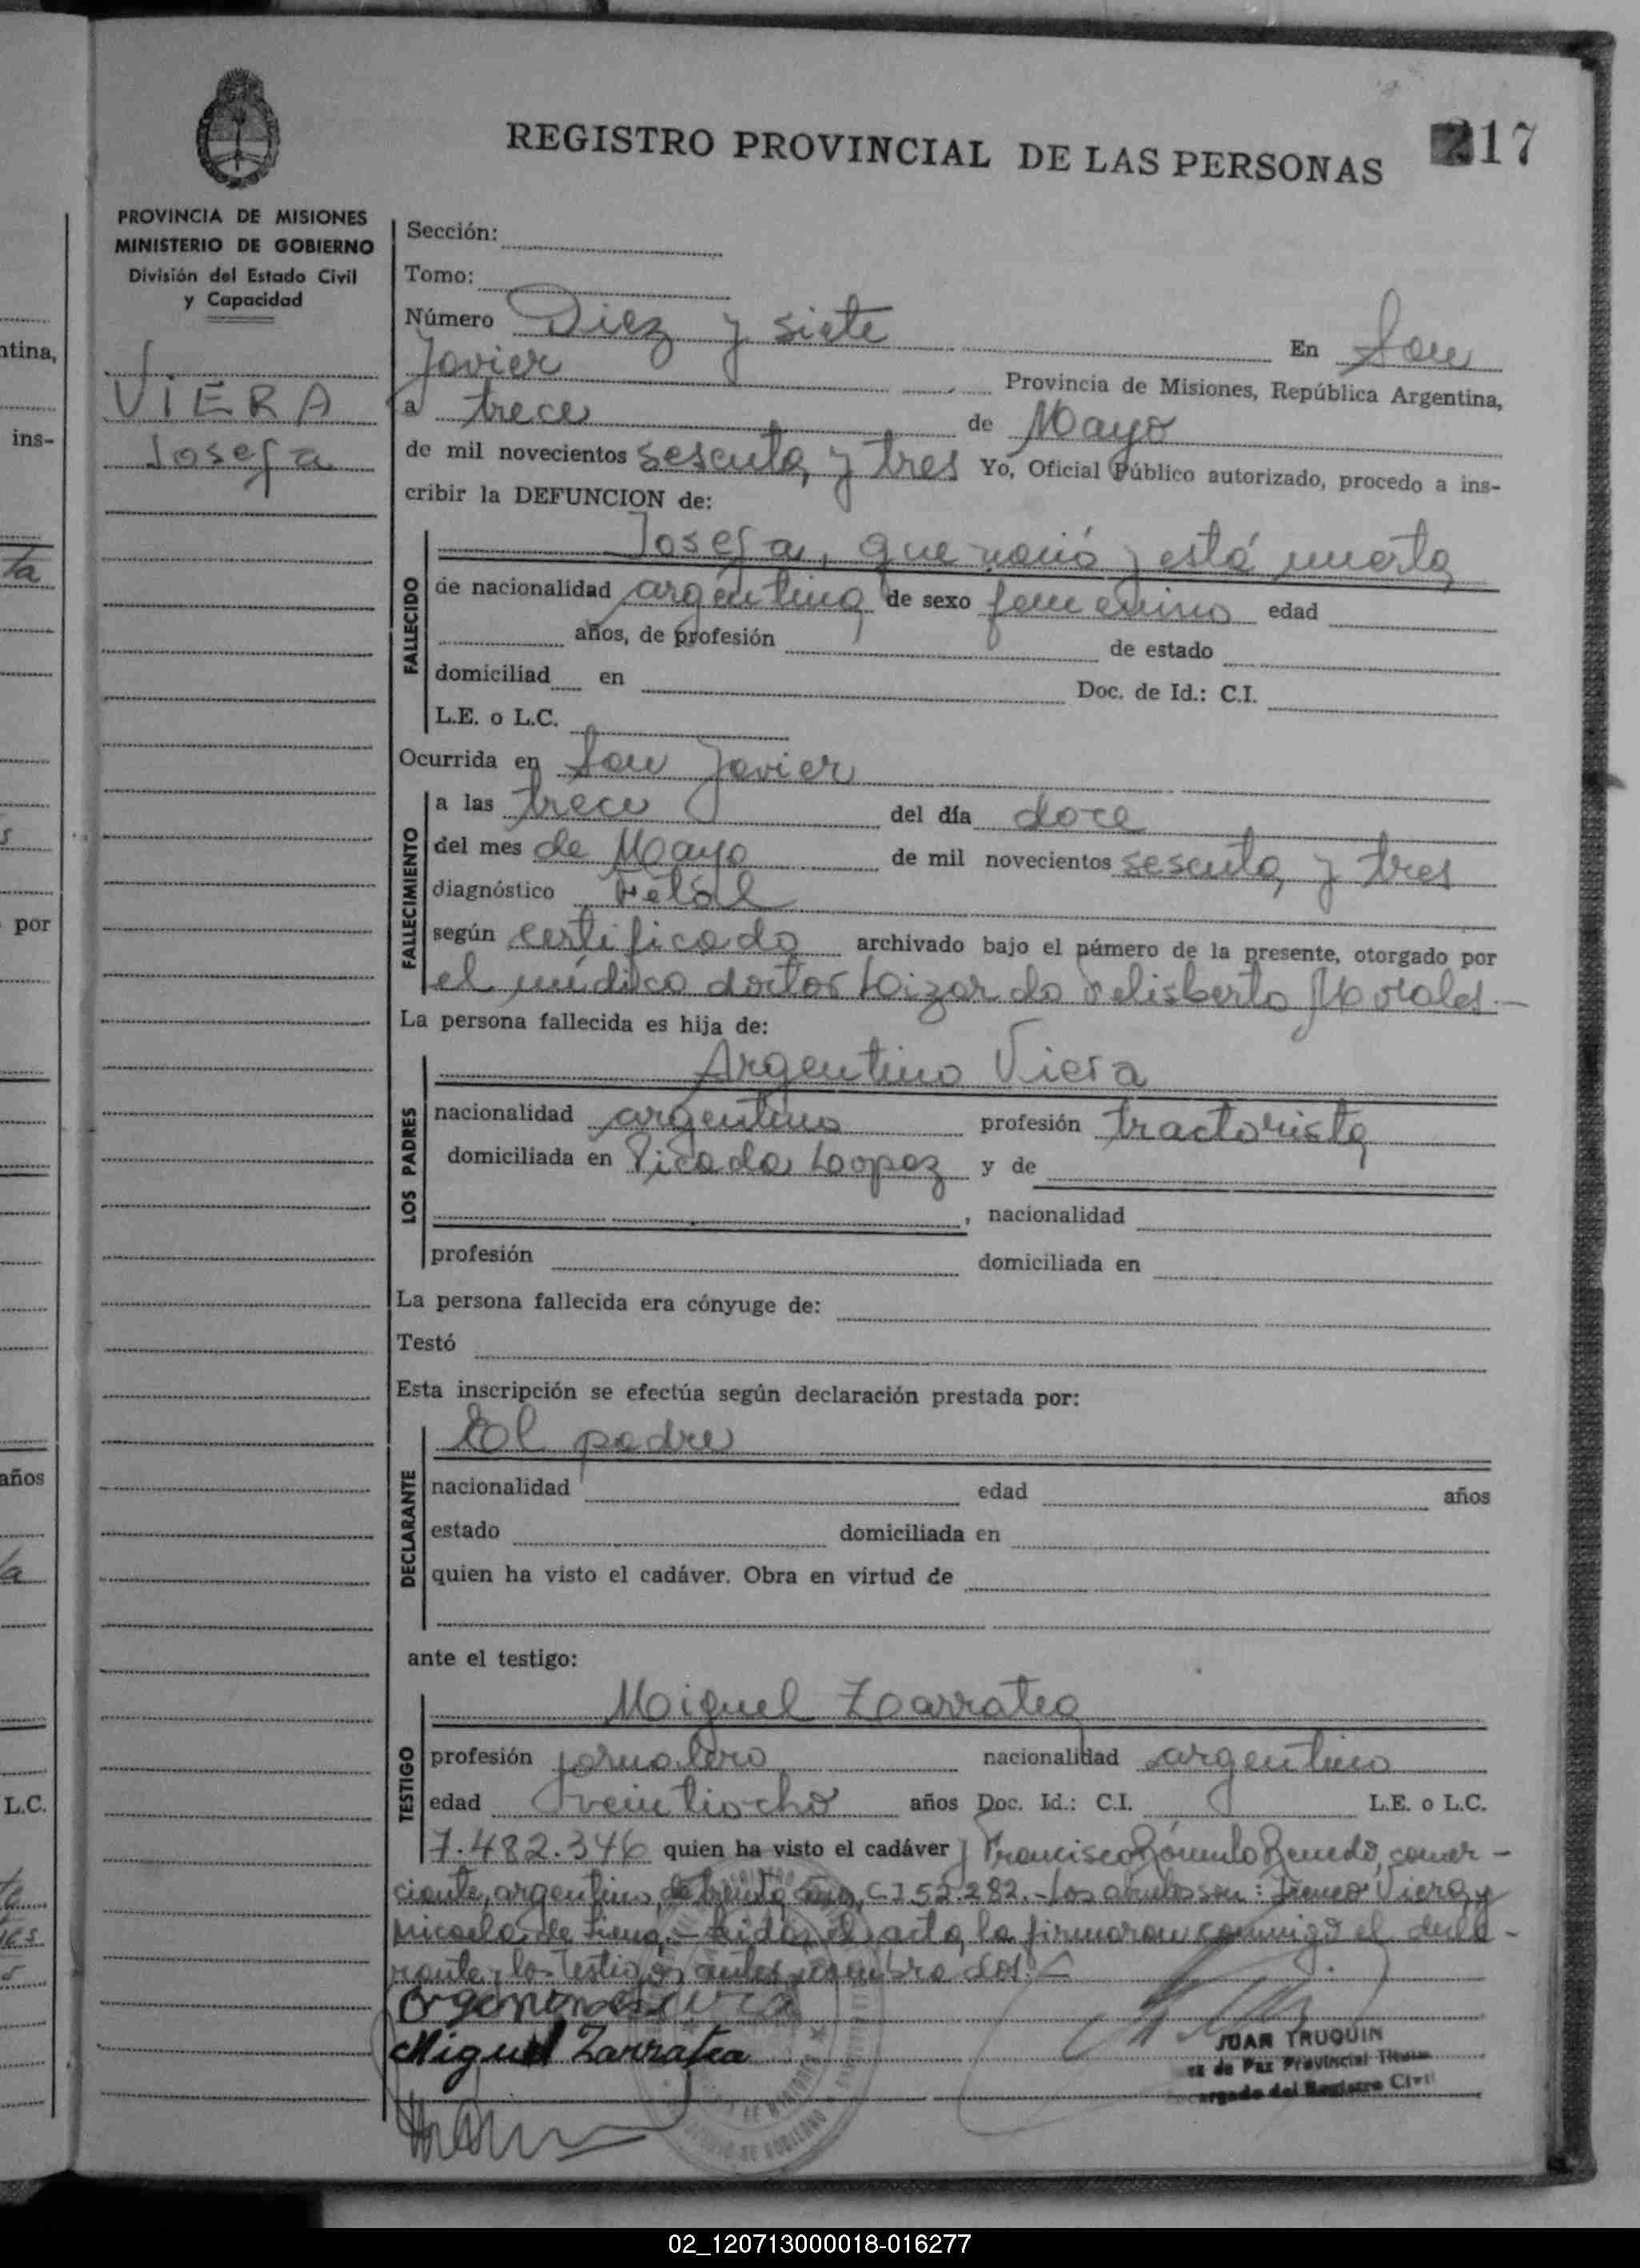 REGISTRO PROVINCIAL DE LAS PERSONAS
217
PROVINCIA DE MISIONES
MINISTERIO DE GOBIERNO
División del Estado Civil
y Capacidad
VIERA
Josefa
Sección:
Tomo:
Número Diez y siete En San
Javier Provincia de Misiones, República Argentina,
a trece de Mayo
de mil novecientos sesenta y tres Yo, Oficial Público autorizado, procedo a ins-
cribir la DEFUNCION de:
FALLECIDO
Josefa, que nació y está muerta
de nacionalidad argentina de sexo femenino edad
años, de profesión de estado
domiciliad en Doc. de Id.: C.I.
L.E. o L.C.
Ocurrida en San Javier
FALLECIMIENTO
a las trece del día doce
del mes de Mayo de mil novecientos sesenta y tres
diagnóstico Fetal
según certificado archivado bajo el número de la presente, otorgado por
el médico doctor Lizardo Felisberto Morales.-
La persona fallecida es hija de:
LOS PADRES
Argentino Viera
nacionalidad argentino profesión tractorista
domiciliada en Picada Loopez y de
, nacionalidad
profesión domiciliada en
La persona fallecida era cónyuge de:
Testó
Esta inscripción se efectúa según declaración prestada por:
DECLARANTE
El padre
nacionalidad edad años
estado domiciliada en
quien ha visto el cadáver. Obra en virtud de
ante el testigo:
TESTIGO
Miguel Zarratea
profesión jornalero nacionalidad argentino
edad veintiocho años Doc. Id.: C.I. L.E. o L.C.
7.482.346 quien ha visto el cadáver y Francisco Rómulo Benedo, comer-
ciante, argentino, de treinta años, C.I 52.282.- Los abuelos son: Viera y
Micaela de Leída el acta, la firmaron conmigo el decla-
rante y los testigos antes
Miguel Zarratea
JUAN TRUQUIN
Juez de Paz Provincial Titular
Encargado del Registro Civil
ntina,
ins-
por
años
L.C.
02_120713000018-016277